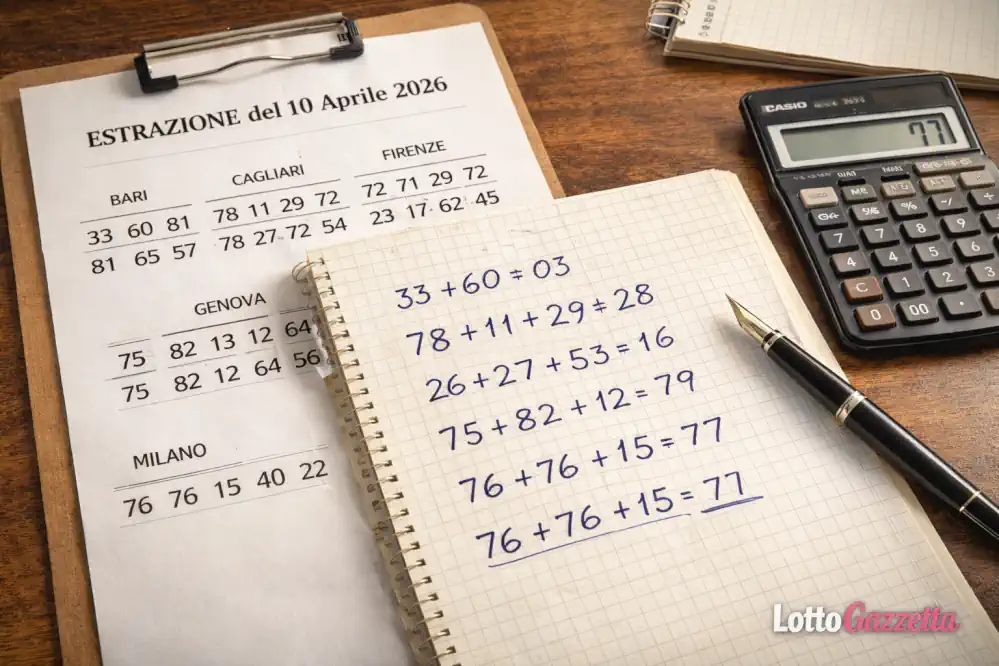 ESTRAZIONE del 10 Aprile 2026
BARI
33 60 81
81 65 57
CAGLIARI
78 11 29 72
78 27 72 54
FIRENZE
72 71 29 72
23 17 62 45
GENOVA
75 82 13 12 64
75 82 12 64 56
MILANO
76 76 15 40 22
33 + 60 = 03
78 + 11 + 29 ÷ 28
26 + 27 + 53 = 16
75 + 82 + 12 = 79
76 + 76 + 15 = 77
76 + 76 + 15 = 77
CASIO
77
7 7 8 9
4 4 5 6
C 1 2 3
0 00 ·
LottoGazzetta